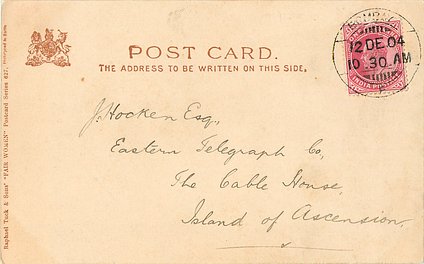 POST CARD.
THE ADDRESS TO BE WRITTEN ON THIS SIDE.
BOMBAY
12 DE 04
10 30 AM
INDIA POSTAGE
J. Hocken Esq.,
Eastern Telegraph Co,
The Cable House,
Island of Ascension.
Raphael Tuck & Sons' "FAIR WOMEN" Postcard Series 627.